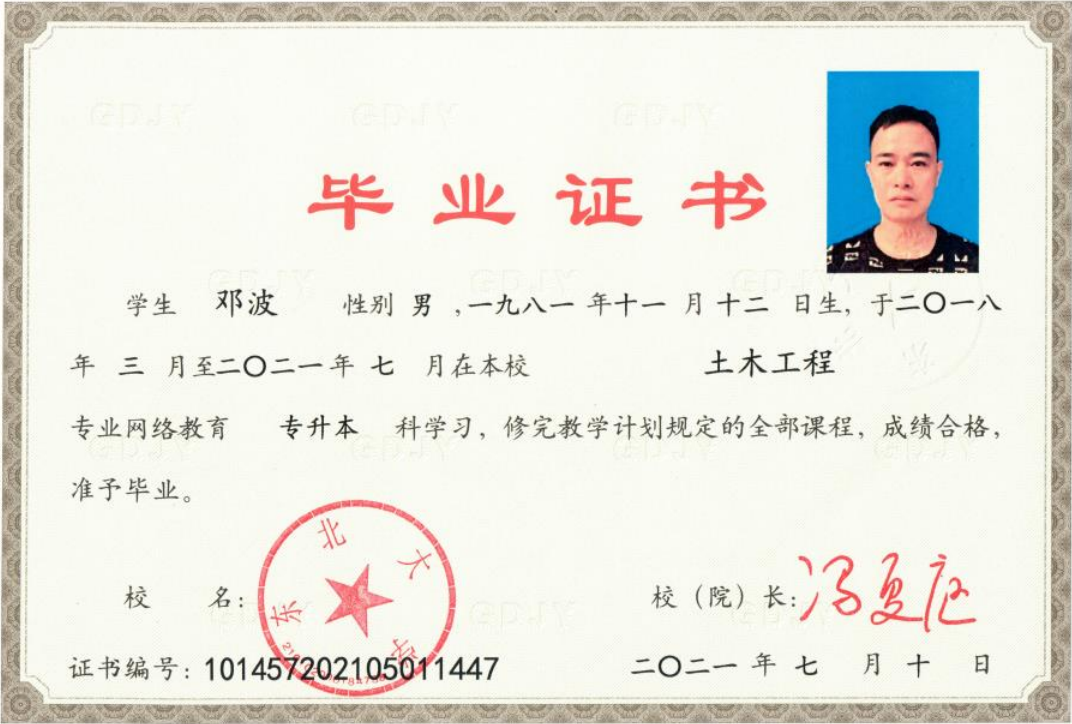 毕业证书
学生 邓波 性别 男 ,一九八一 年十一 月 十二 日生, 于二〇一八
年 三 月至二〇二一年 七 月在本校 土木工程
专业网络教育 专升本 科学习, 修完教学计划规定的全部课程, 成绩合格,
准予毕业。
校 名:
东北大学
校（院）长: 冯夏庭
证书编号: 101457202105011447
二〇二一 年 七 月 十 日